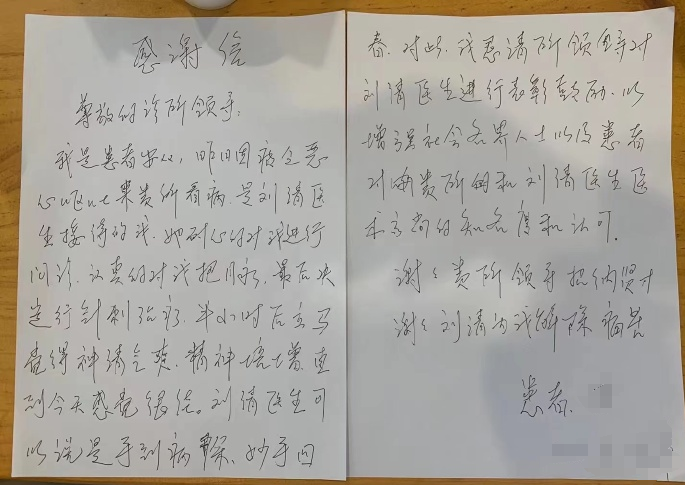 感谢信
尊敬的诊所领导:
我是患者家人,昨日因病人恶
心呕吐来贵所看病.是刘清医
生接待的我.她耐心的对我进行
问诊.认真的对我把脉,最后决
定行针刺治疗.半小时后立马
觉得神清气爽.精神培增.直
到今天感觉很佳。刘清医生可
以说是手到病除、妙手回
春.对此,我恳请所领导对
刘清医生进行表彰鼓励.以
增强社会各界人士以及患者
对贵所和刘清医生医
术高尚的知名度和认可.
谢谢贵所领导招纳贤才
谢谢刘清为我解除病苦
患者.